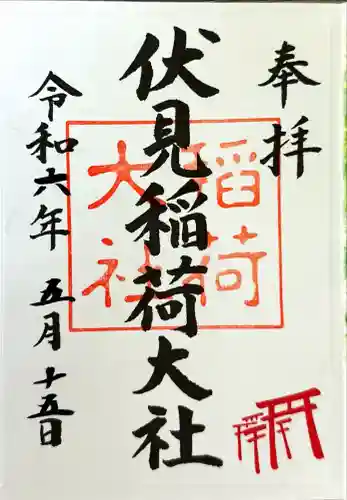 奉拝
伏見稲荷大社
稲荷
大社
令和六年 五月十五日